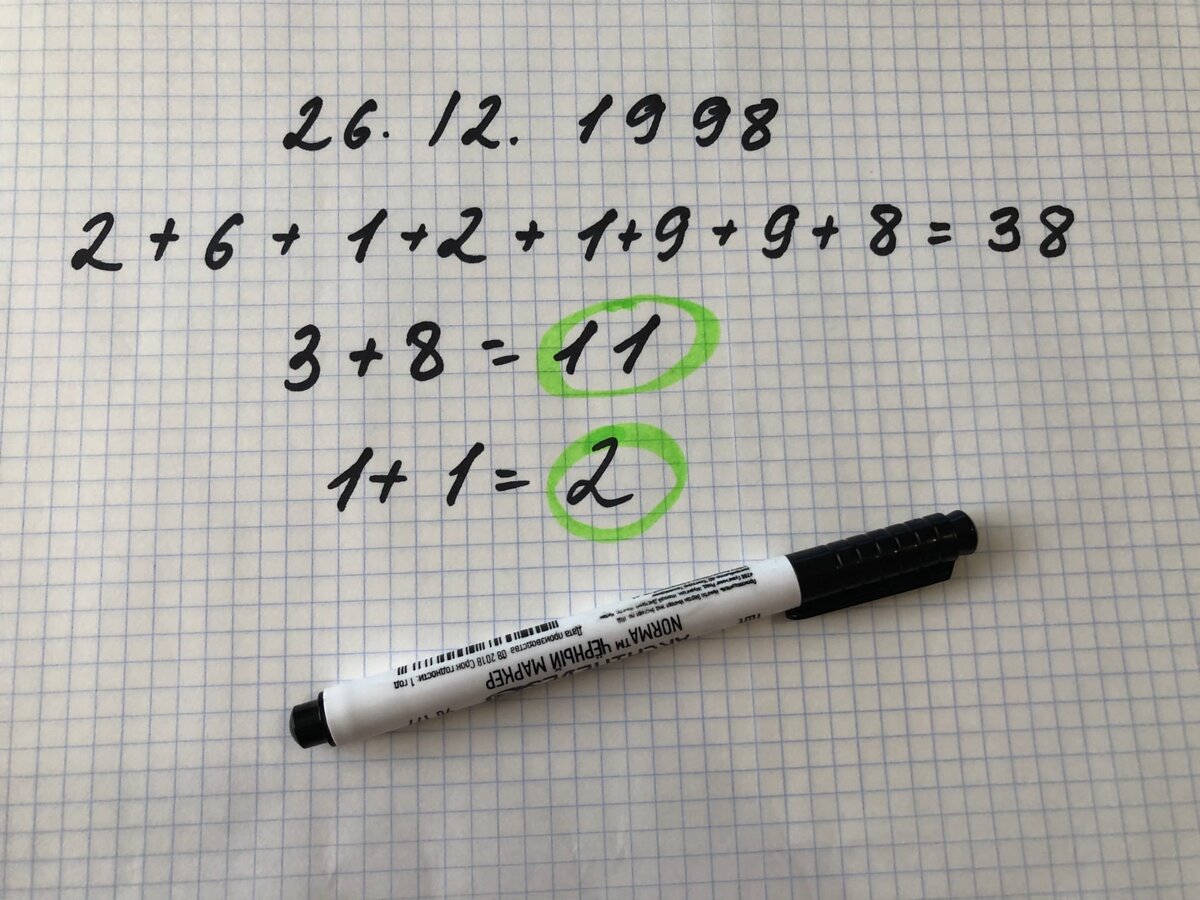 26. 12. 1998
2 + 6 + 1 + 2 + 1 + 9 + 9 + 8 = 38
3 + 8 = 11
1 + 1 = 2
NORMA™ ЧЁРНЫЙ МАРКЕР
Дата производства 08 2018 Срок годности: 1 год